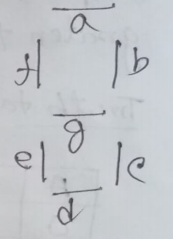 a
f b
g
e c
d